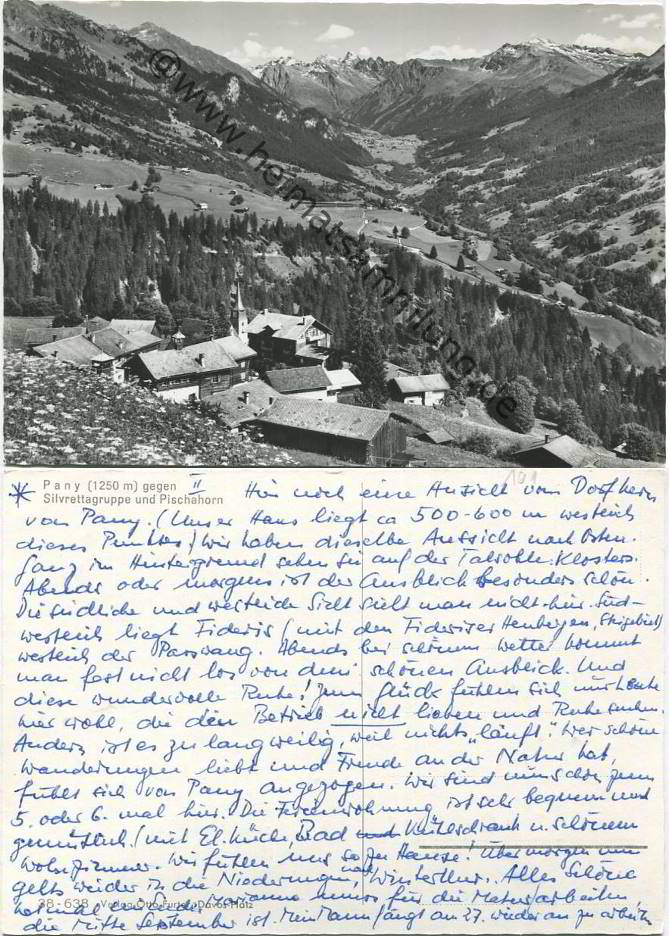 ©www.heimatsammlung.de
Pany (1250 m) gegen
Silvrettagruppe und Pischahorn
II
Hier noch eine Ansicht vom Dorfkern
von Pany. (Unser Haus liegt ca 500-600 m westlich
dieses Punktes) Wir haben dieselbe Aussicht nach Osten.
Ganz im Hintergrund sehen Sie auf der Talsohle: Klosters.
Abends oder morgens ist der Ausblick besonders schön.
Die südliche und westliche Sicht sieht man nicht hier. Süd-
westlich liegt Fideris (mit den Fideriser Heubergen, Skigebiet)
westlich der . Abends bei schönem Wetter kommt
man fast nicht los von dem schönen Ausblick. Und
diese wundervolle Ruhe! Zum Glück fühlen sich nur Leute
hier wohl, die den Betrieb nicht lieben und Ruhe suchen.
Anders ist es zu langweilig, weil nichts "läuft". Wer schöne
Wanderungen liebt und Freude an der Natur hat,
fühlt sich von Pany angezogen. Wir sind nun schon zum
5. oder 6. mal hier. Die Ferienwohnung ist sehr bequem und
gemütlich (mit El. Küche, Bad und Kühlschrank u. schönem
Wohnzimmer. Wir fühlen uns so zu Hause! Übermorgen
gehts wieder in die Niederungen, nach Winterthur. Alles Schöne
hat mal ein Ende
die Mitte September ist. Mein Mann fängt am 27. wieder an zu arbeiten
38-638 Verlag Otto Furter, Davos-Platz